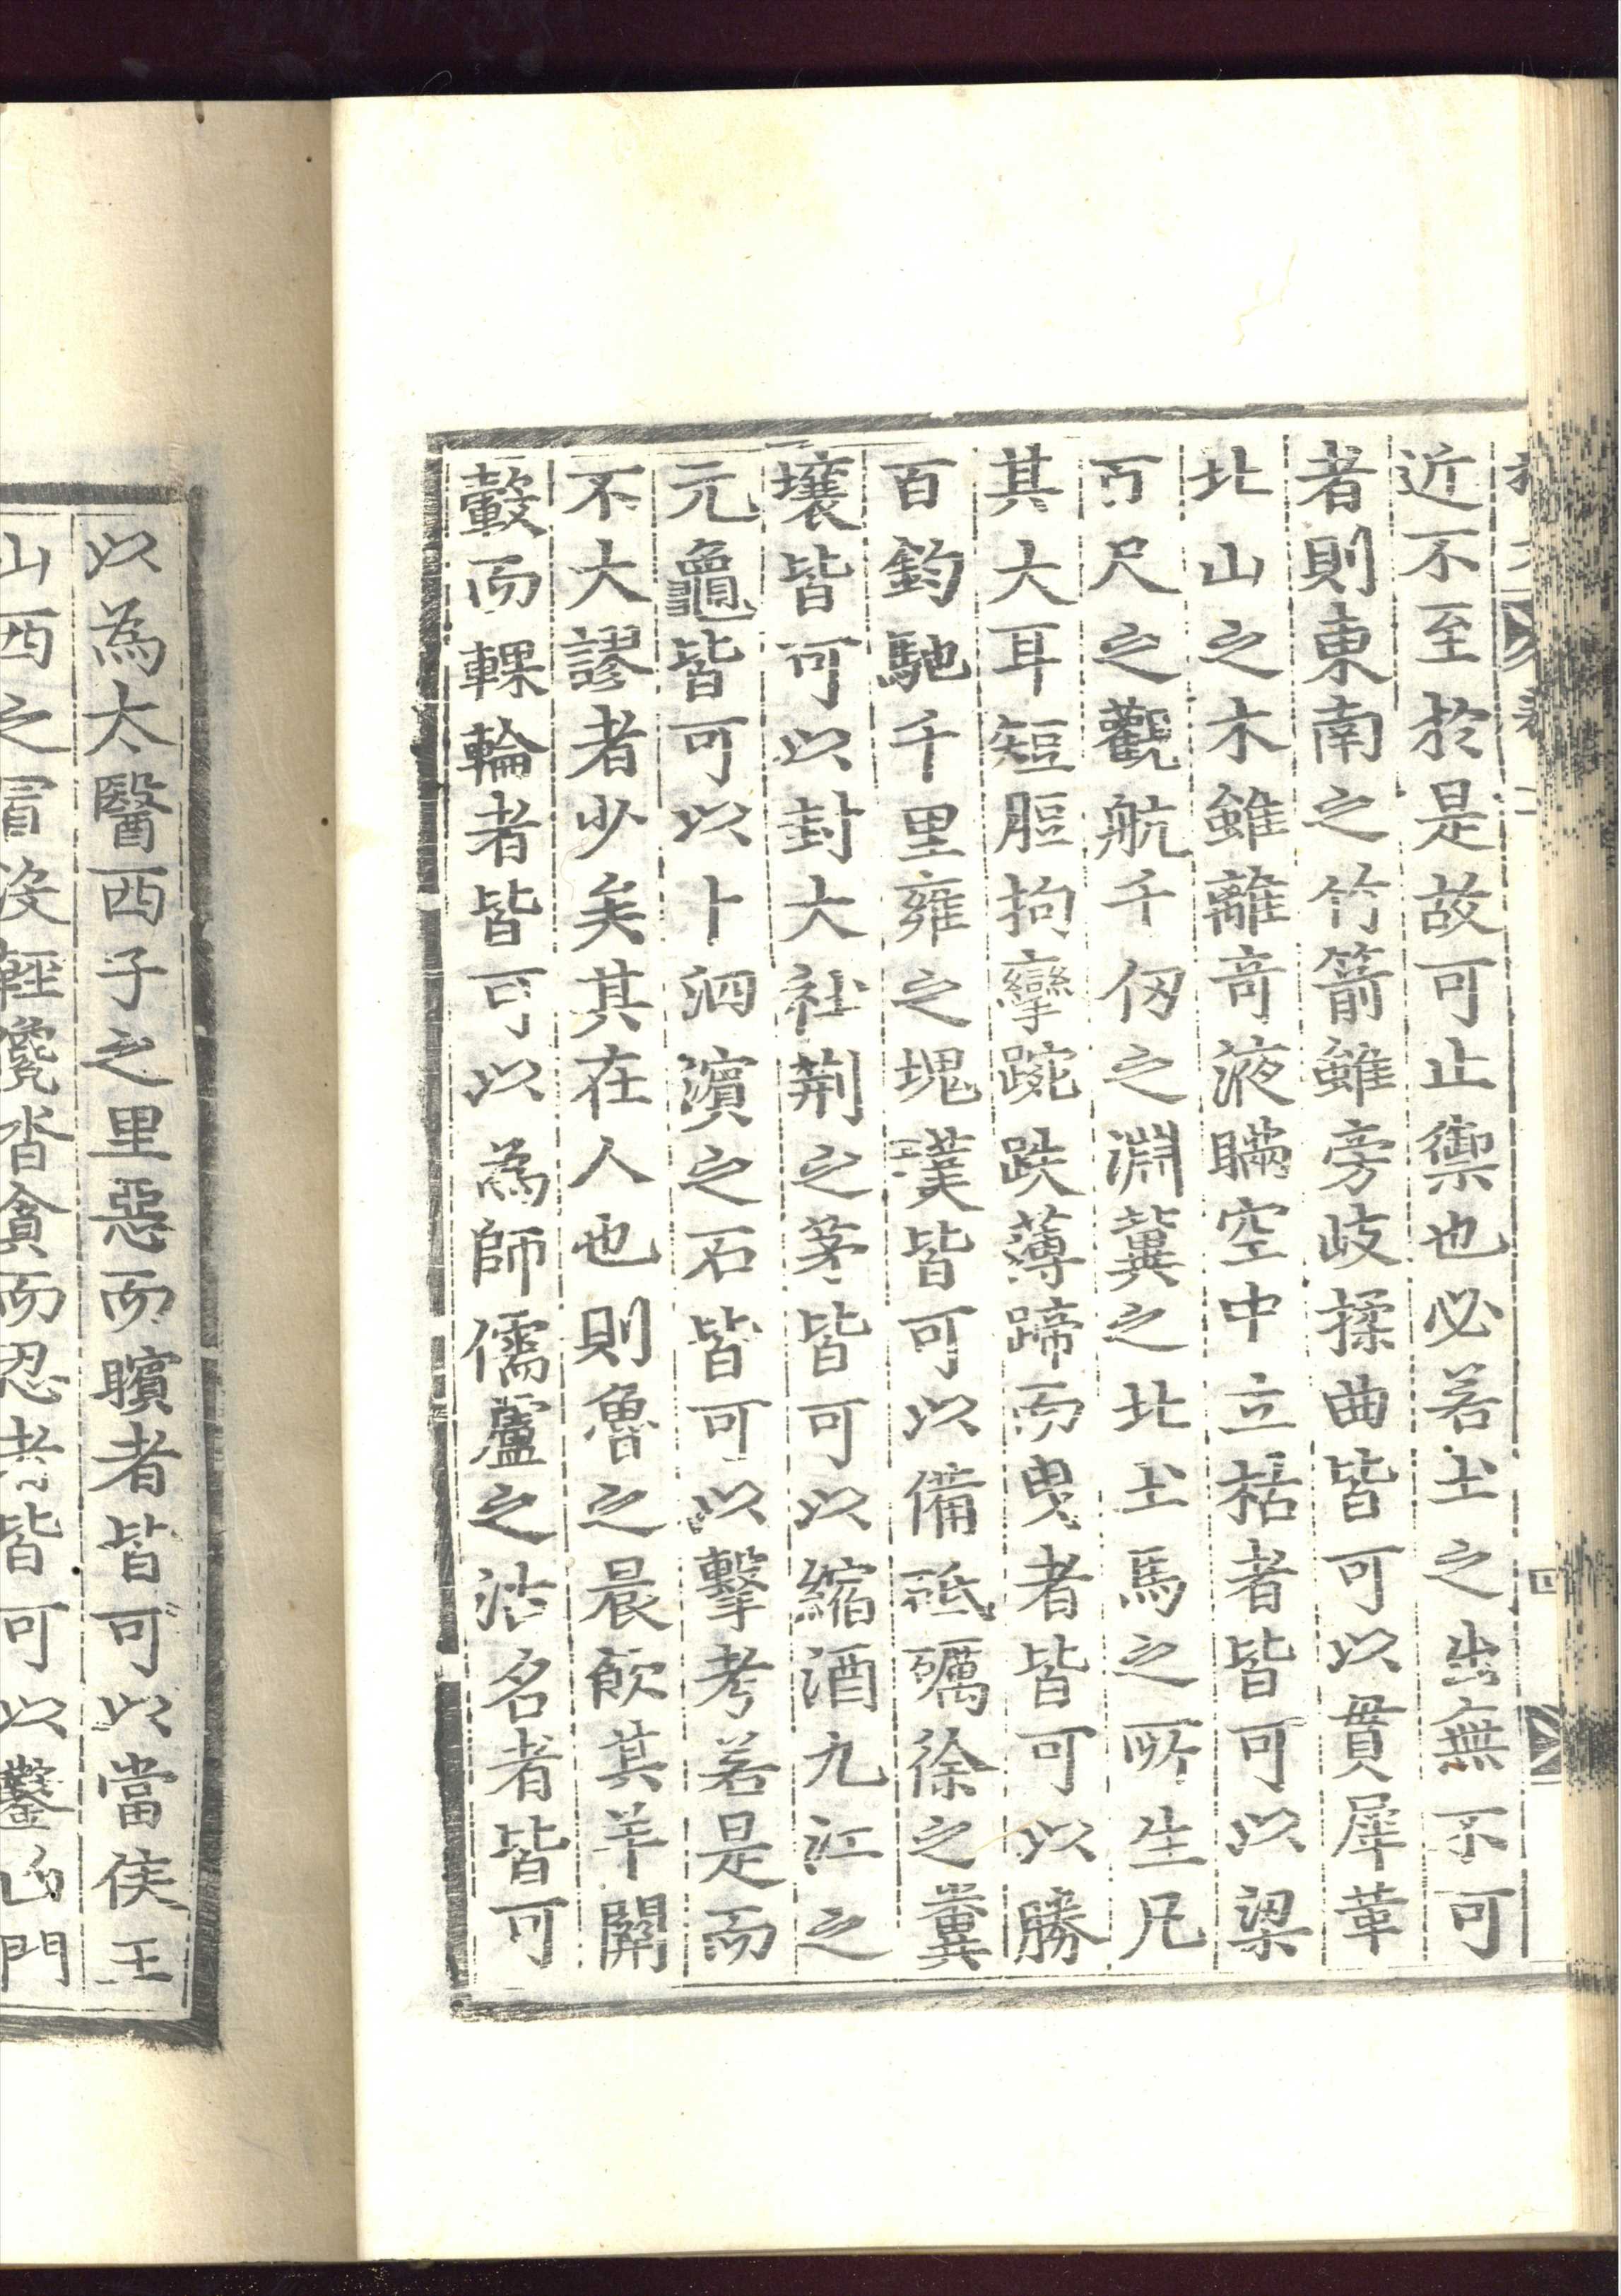 近不至於是故可止禦也必若土之出無不可
者則東南之竹箭雖旁岐揉曲皆可以貫犀革
北山之木雖離奇液瞞空中立枯者皆可以梁
百尺之觀航千仭之淵冀之北土馬之所生凡
其大耳短脰拘攣踠跌薄蹄而曳者皆可以勝
百鈞馳千里雍之塊璞皆可以備砥礪徐之糞
壤皆可以封大社荆之茅皆可以縮酒九江之
元龜皆可以卜泗濱之石皆可以擊考若是而
不大謬者少矣其在人也則魯之晨飮其羊關
轂而輠輪者皆可以為師儒盧之沽名者皆可
以為太醫西子之里惡而矉者皆可以當侯王
山西之冒沒輕儳沓貪而忍者皆可以鑿凶門